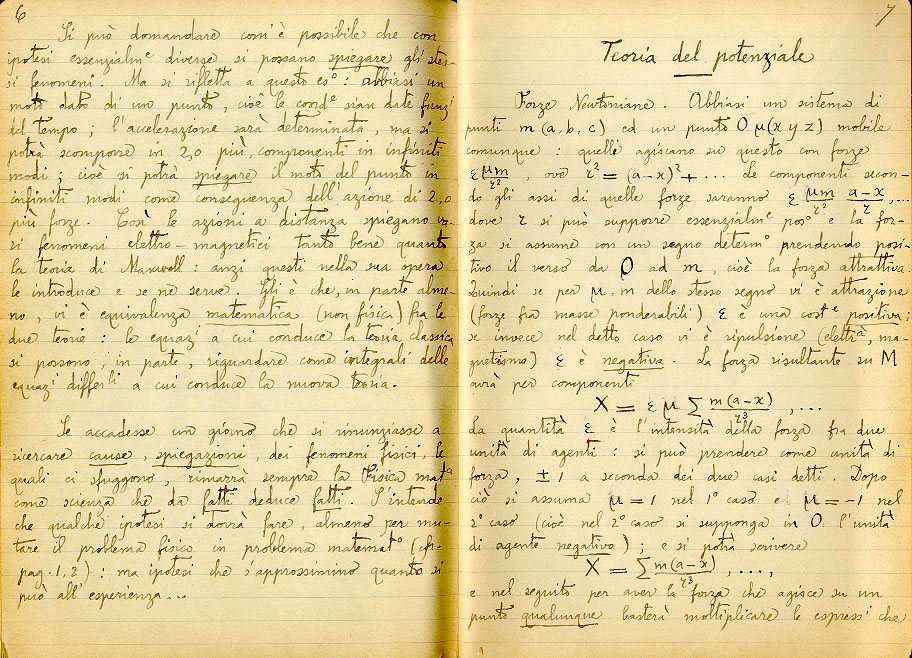 6
Si può domandare com'è possibile che con
ipotesi essenzialmᵉ diverse si possano spiegare gli stes-
si fenomeni. Ma si rifletta a questo esº: abbiasi un
moto dato di un punto, cioè le coordᵉ sian date funzⁱ
del tempo; l'accelerazione sarà determinata, ma si
potrà scomporre in 2, o più, componenti in infiniti
modi; cioè si potrà spiegare il moto del punto in
infiniti modi come conseguenza dell'azione di 2, o
più forze. Così le azioni a distanza spiegano
si fenomeni elettro-magnetici tanto bene quanto
la teoria di Maxwell: anzi questi nella sua opera
le introduce e se ne serve. Gli è che, in parte alme-
no, vi è equivalenza matematica (non fisica) fra le
due teorie: le equazⁱ a cui conduce la teoria classica
si possono, in parte, riguardare come integrali delle
equazⁱ differˡⁱ a cui conduce la nuova teoria.
Se accadesse un giorno che si rinunziasse a
ricercare cause, spiegazioni, dei fenomeni fisici, le
quali ci sfuggono, rimarrà sempre la Fisica matᵃ
come scienza che da fatti deduce fatti. S'intende
che qualche ipotesi si dovrà fare, almeno per mu-
tare il problema fisico in problema matematº (cfr.
pag. 1, 2): ma ipotesi che s'approssimino quanto si
può all'esperienza...
7
Teoria del potenziale
Forze Newtoniane. Abbiasi un sistema di
punti m (a, b, c) ed un punto O μ(x y z) mobile
comunque: quelli agiscano su questo con forze
ε μm/r², ove r² = (a-x)² + ... Le componenti secon-
do gli assi di quelle forze saranno ε μm/r² a-x/r,...
dove r si può supporre essenzialmᵉ posº e la for-
za si assume con un segno determº prendendo posi-
tivo il verso da O ad m, cioè la forza attrattiva.
Quindi se per μ, m dello stesso segno vi è attrazione
(forze fra masse ponderabili) ε è una costᵉ positiva;
se invece nel detto caso vi è ripulsione (elettrᵃ, ma-
gnetismo) ε è negativa. La forza risultante su M
avrà per componenti
X = ε μ Σ m(a-x)/r³, ...
La quantità ε è l'intensità della forza fra due
unità di agenti: si può prendere come unità di
forza, ± 1 a seconda dei due casi detti. Dopo
ciò si assuma μ = 1 nel 1º caso e μ = -1 nel
2º caso (cioè nel 2º caso si supponga in O l'unità
di agente negativo); e si potrà scrivere
X = Σ m(a-x)/r³, ...,
e nel seguito per aver la forza che agisce su un
punto qualunque basterà moltiplicare le espressⁱ che